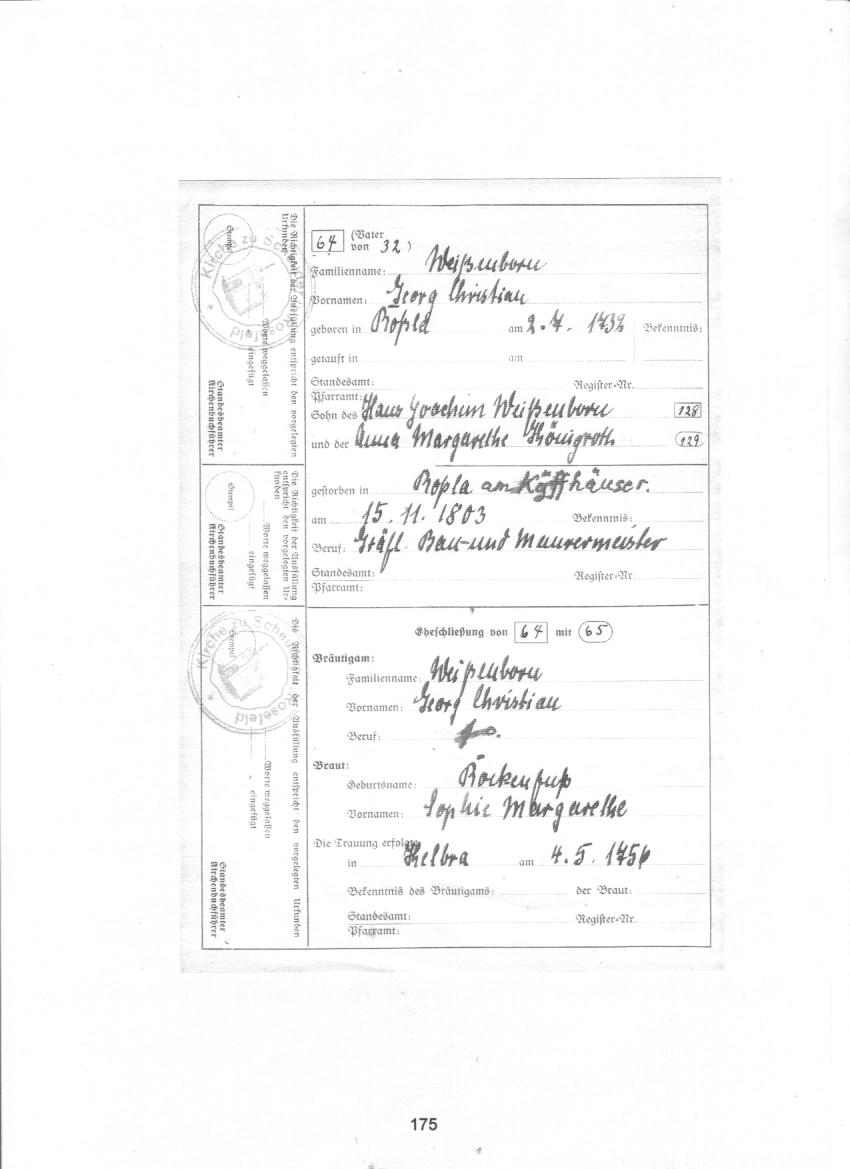 64 (Vater von 32)
Familienname: Weißenborn
Vornamen: Georg Christian
geboren in Roßla am 2.7.1732 Bekenntnis:
getauft in am
Standesamt: Register-Nr.
Pfarramt:
Sohn des Hans Joachim Weißenborn 128
und der Anna Margarethe 129
gestorben in Roßla am Kyffhäuser.
am 15.11.1803 Bekenntnis:
Beruf: Gräfl. Bau-und Maurermeister
Standesamt: Register-Nr.
Pfarramt:
Eheschließung von 64 mit 65
Bräutigam:
Familienname: Weißenborn
Vornamen: Georg Christian
Beruf:
Braut:
Geburtsname: Rockenfuß
Vornamen: Sophie Margarethe
Die Trauung erfolgte
in Kelbra am 4.5.1756
Bekenntnis des Bräutigams: der Braut:
Standesamt: Register-Nr.
Pfarramt:
Die Richtigkeit der Ausfüllung entspricht den vorgelegten
Urkunden
Worte weggelassen
" eingefügt
Standesbeamter
Kirchenbuchführer
Stempel
Kirche zu Scheuder
Rosefeld
Die Richtigkeit der Ausfüllung
entspricht den vorgelegten Ur-
kunden
Worte weggelassen
eingefügt
Standesbeamter
Kirchenbuchführer
Stempel
Die Richtigkeit der Ausfüllung entspricht den vorgelegten Urkunden
Worte weggelassen
" eingefügt
Standesbeamter
Kirchenbuchführer
Stempel
Kirche zu Scheuder
Rosefeld
175